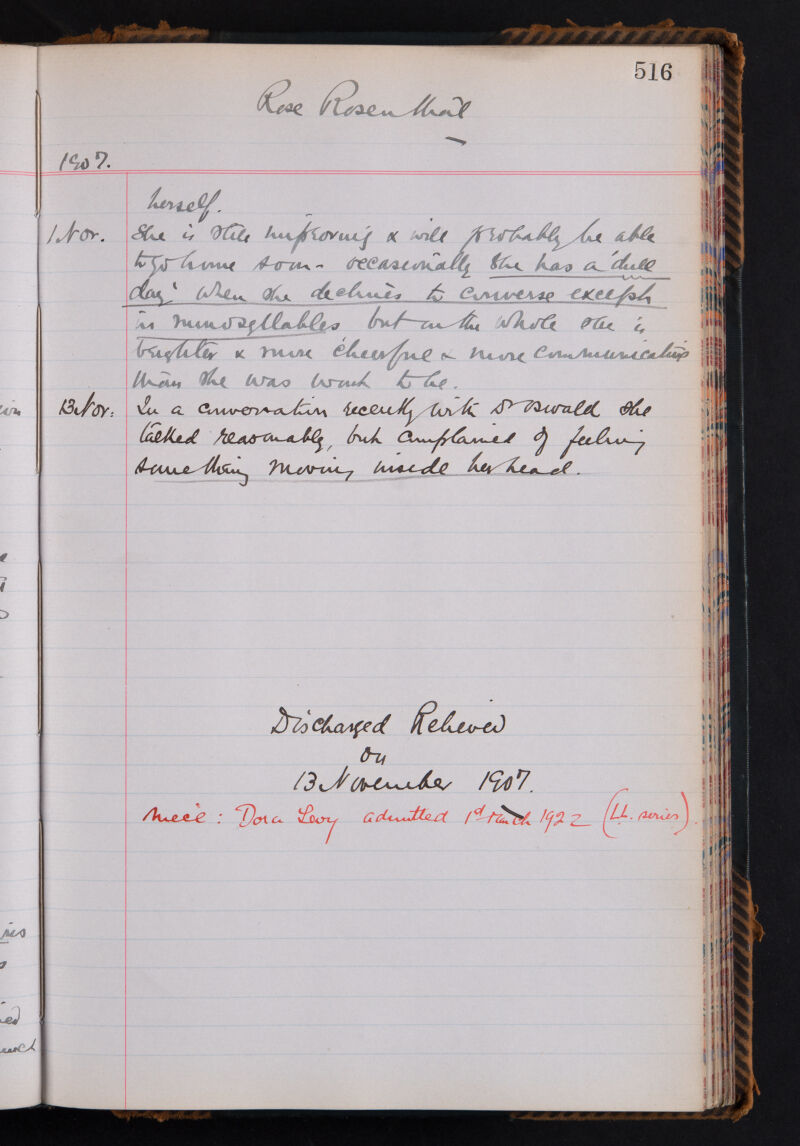 516
Rose Rosenthal
1907.
herself.
1 Nov. She is still improving & will probably be able
to go home soon - occasionally she has a 'dull
day' when she declines to converse except
in monosyllables but on the whole she is
brighter & more cheerful & more communicative
than she was wont to be.
13 Nov: In a conversation recently with Dr Oswald she
talked reasonably, but complained of feeling
something moving inside her head.
Discharged Relieved
on
13 November 1907.
Niece : Dora Levy admitted 1st March 1922 (LL. series).